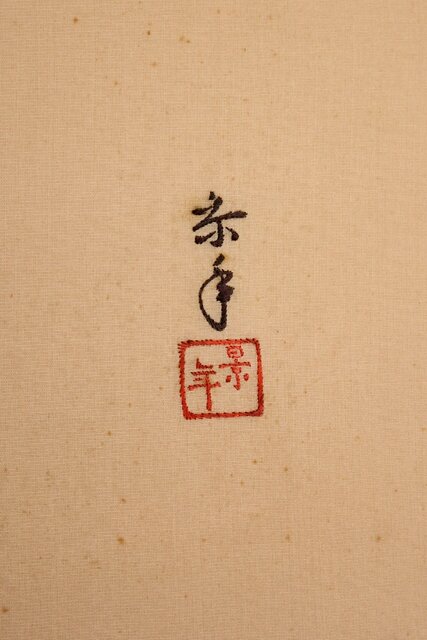 景年
景年